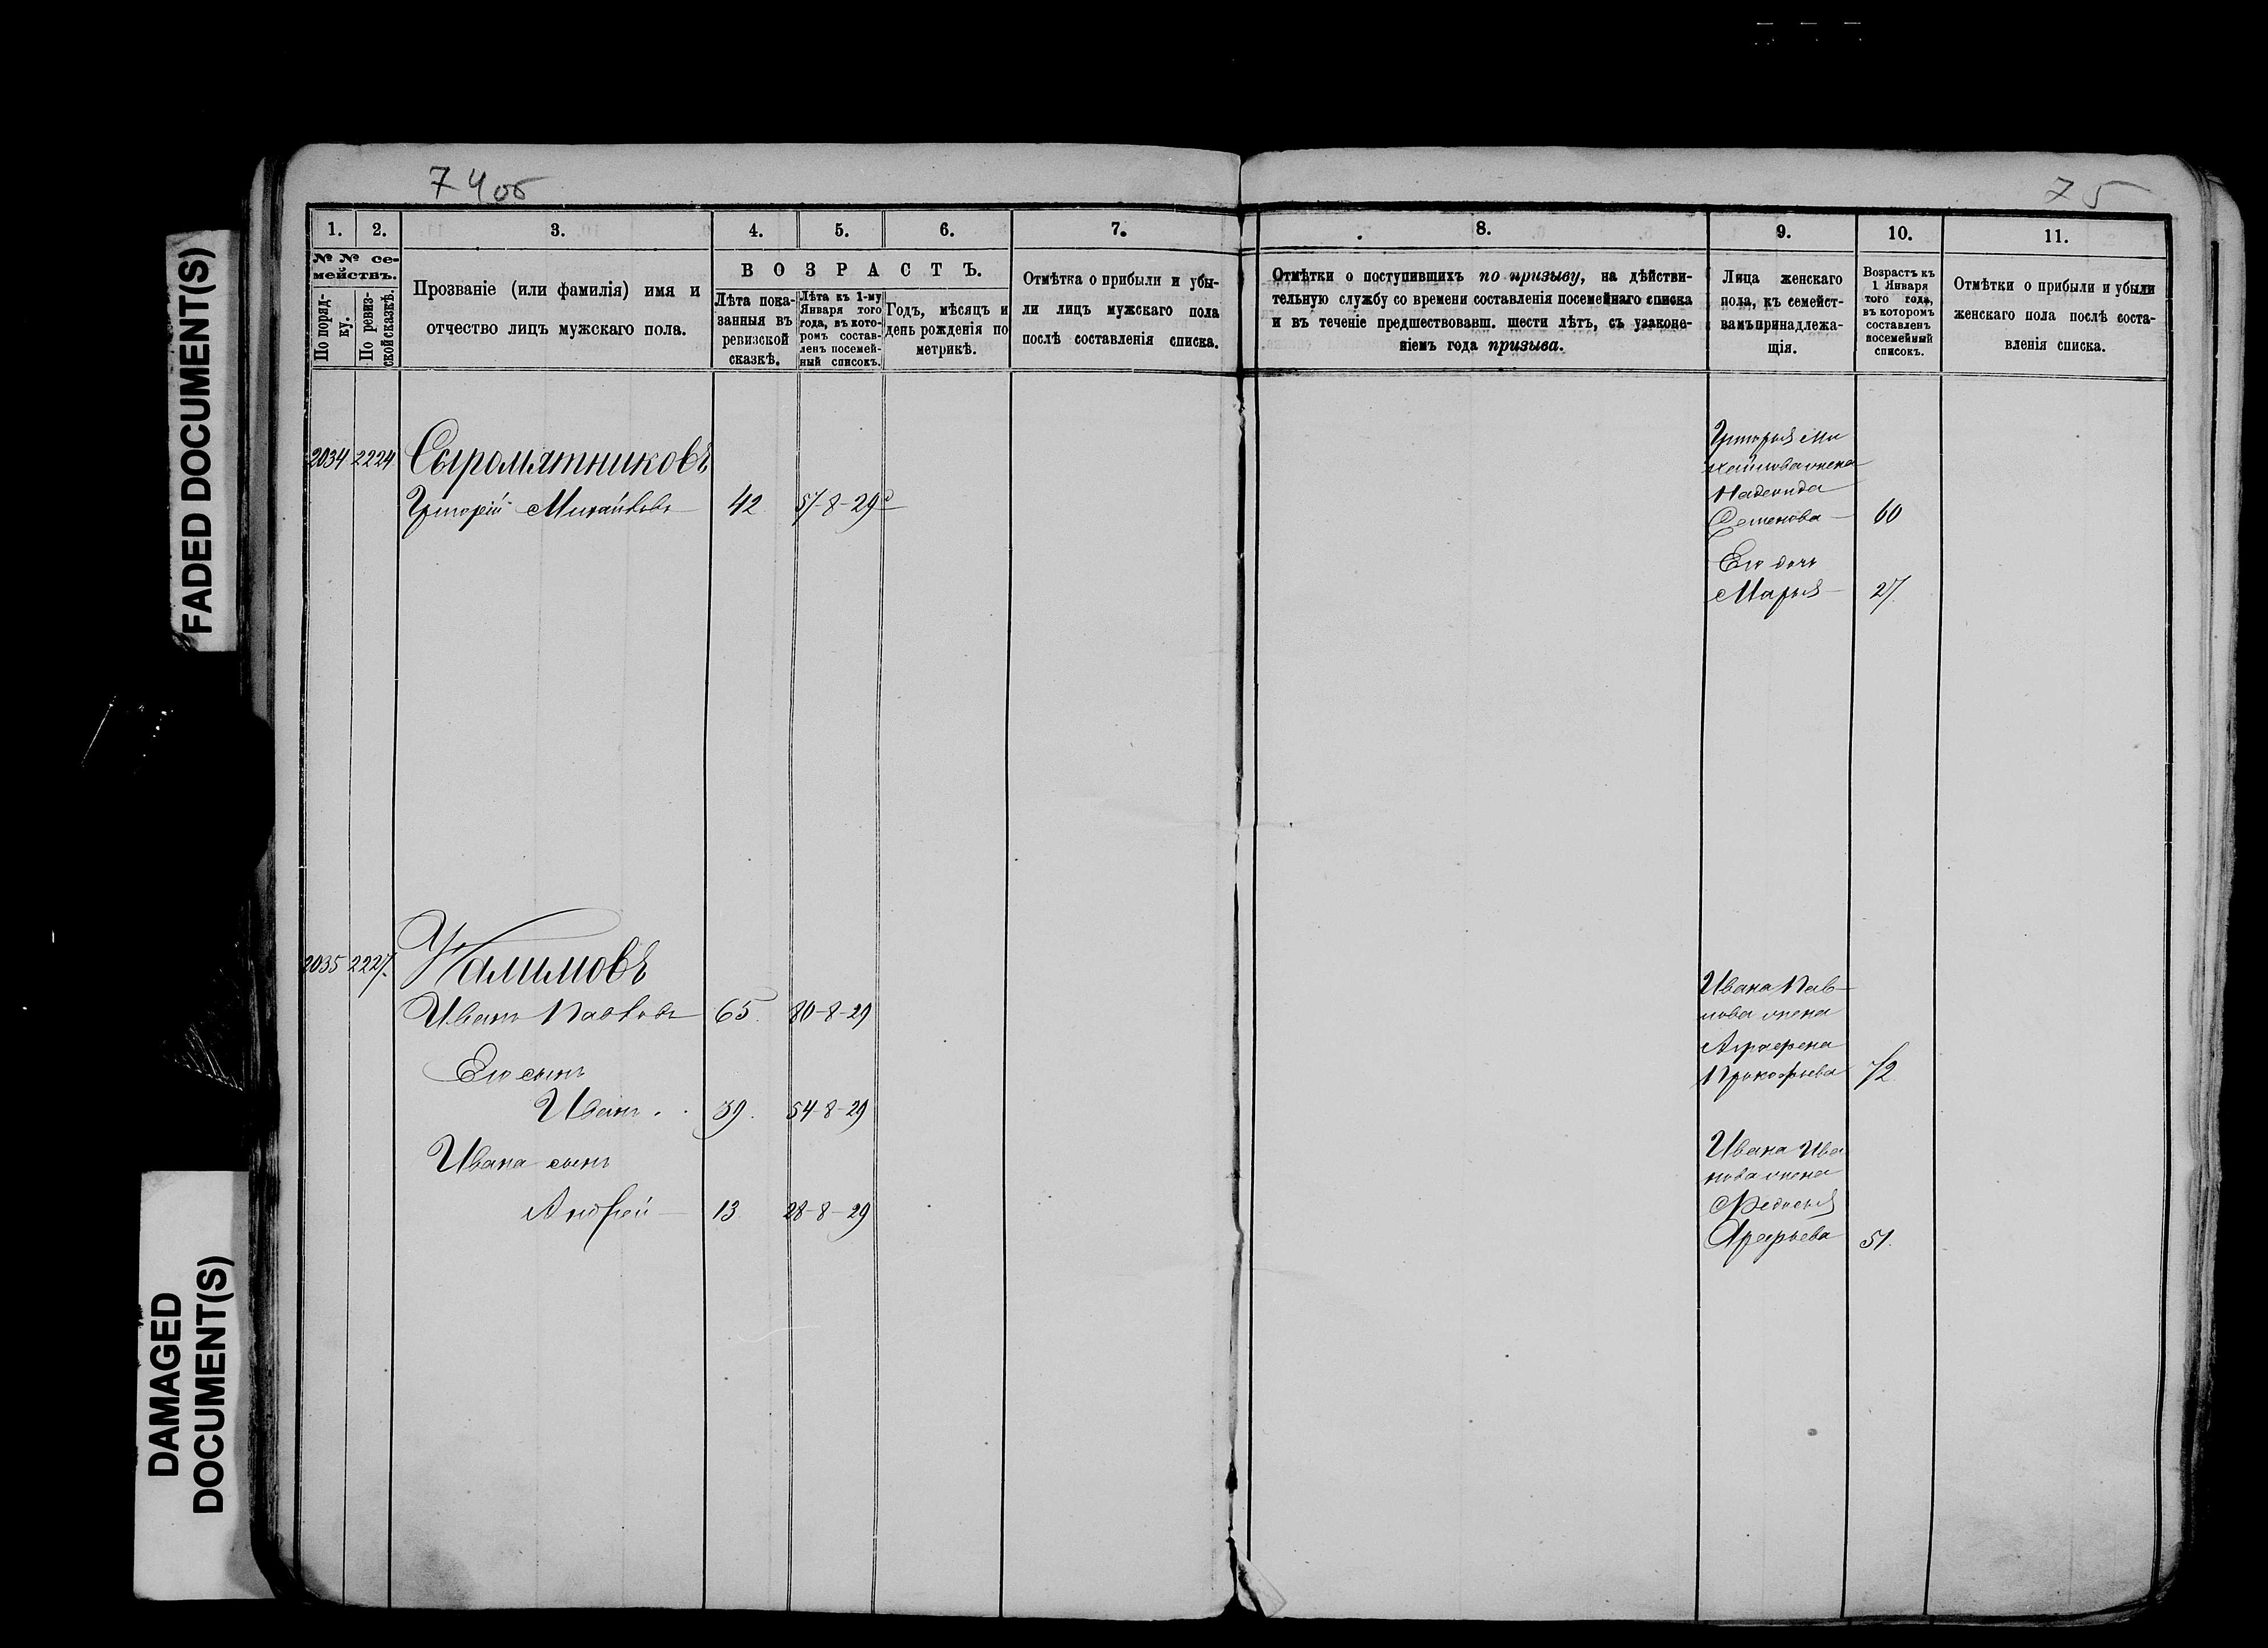 74об
75
FADED DOCUMENT(S)
DAMAGED
DOCUMENT(S)
1.
2.
3.
4.
5.
6.
7.
8.
9.
10.
11.
№ № се-
мействъ.
По поряд-
ку.
По ревиз-
ской сказкѣ.
Прозваніе (или фамилія) имя и
отчество лицъ мужскаго пола.
ВОЗРАСТЪ.
Лѣта пока-
занныя въ
ревизской
сказкѣ.
Лѣта къ 1-му
Января того
года, въ кото-
ромъ состав-
ленъ посемей-
ный списокъ.
Годъ, мѣсяцъ и
день рожденія по
метрикѣ.
Отмѣтка о прибыли и убы-
ли лицъ мужскаго пола
послѣ составленія списка.
Отмѣтки о поступившихъ по призыву, на дѣйстви-
тельную службу со времени составленія посемейнаго списка
и въ теченіе предшествовавш. шести лѣтъ, съ узаконе-
ніемъ года призыва.
Лица женскаго
пола, къ семейст-
вамъ принадлежа-
щія.
Возрастъ къ
1 Января
того года,
въ которомъ
составленъ
посемейный
списокъ.
Отмѣтки о прибыли и убыли
женскаго пола послѣ соста-
вленія списка.
2034 2224 Сыромятниковъ
Григорій Михайловъ 42 57-8-29
Григорья Ми
хайлова жена
Надежда
Семенова 60
Его дочь
Марья 27.
2035 2227.
Иванъ Павловъ 65. 80-8-29
Его сынъ
Иванъ 39. 54-8-29
Ивана сынъ
Андрей 13. 28-8-29
Ивана Пав-
лова жена
Аграфена
Прокофьева 72
Ивана Ива
нова жена
Федосья
51.